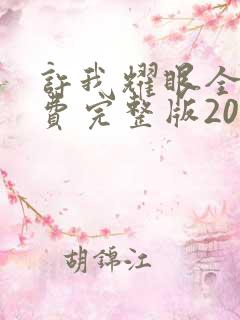 許我耀眼全
費完整版20
胡錦江